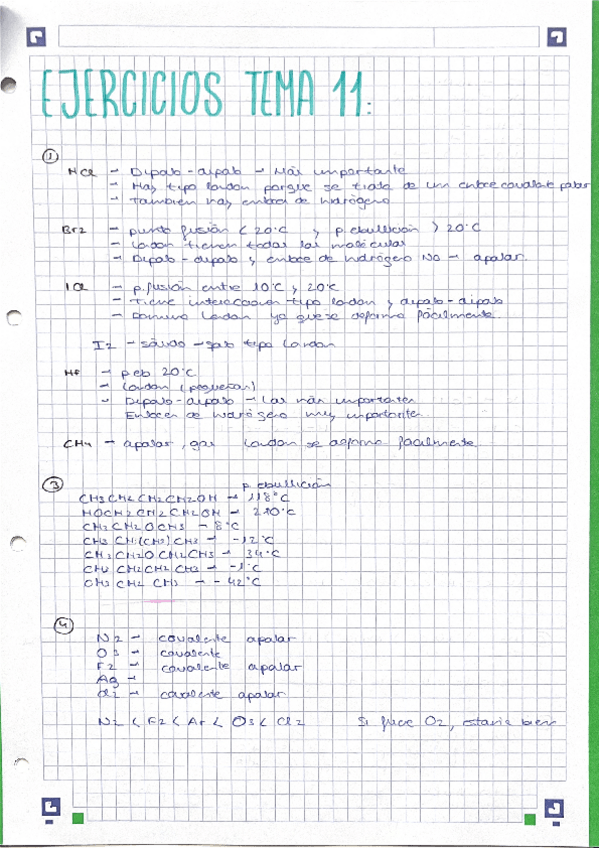 EJERCICIOS TEMA 11:
①
HCl → Dipolo-dipolo → Más importante
→ Hay tipo london porque se trata de un enlace covalente polar
→ También hay enlace de hidrógeno
Br2 → punto fusión < 20°C y p. ebullición > 20°C
→ London tienen todas las moléculas
→ Dipolo-dipolo y enlace de hidrógeno No → apolar.
ICl → p. fusión entre 10°C y 20°C
→ Tiene interacciones tipo london y dipolo-dipolo
→ Domina London ya que se deforma fácilmente.
I2 → sólido → solo tipo London
HF → p eb 20°C
→ London (pequeñas)
→ Dipolo-dipolo → Las más importantes
Enlaces de hidrógeno muy importantes.
CH4 → apolar, gas London se deforma fácilmente
③ p. ebullición
CH3CH2CH2CH2OH → 118°C
HOCH2CH2CH2OH → 210°C
CH3CH2OCH3 → 8°C
CH3CH(CH3)CH3 → -12°C
CH3CH2OCH2CH3 → 34°C
CH3CH2CH2CH3 → -1°C
CH3CH2CH3 → -42°C
④
N2 → covalente apolar
O3 → covalente
F2 → covalente apolar
Ar →
Cl2 → covalente apolar
N2 < F2 < Ar < O3 < Cl2 Si fuese O2, estaría bien